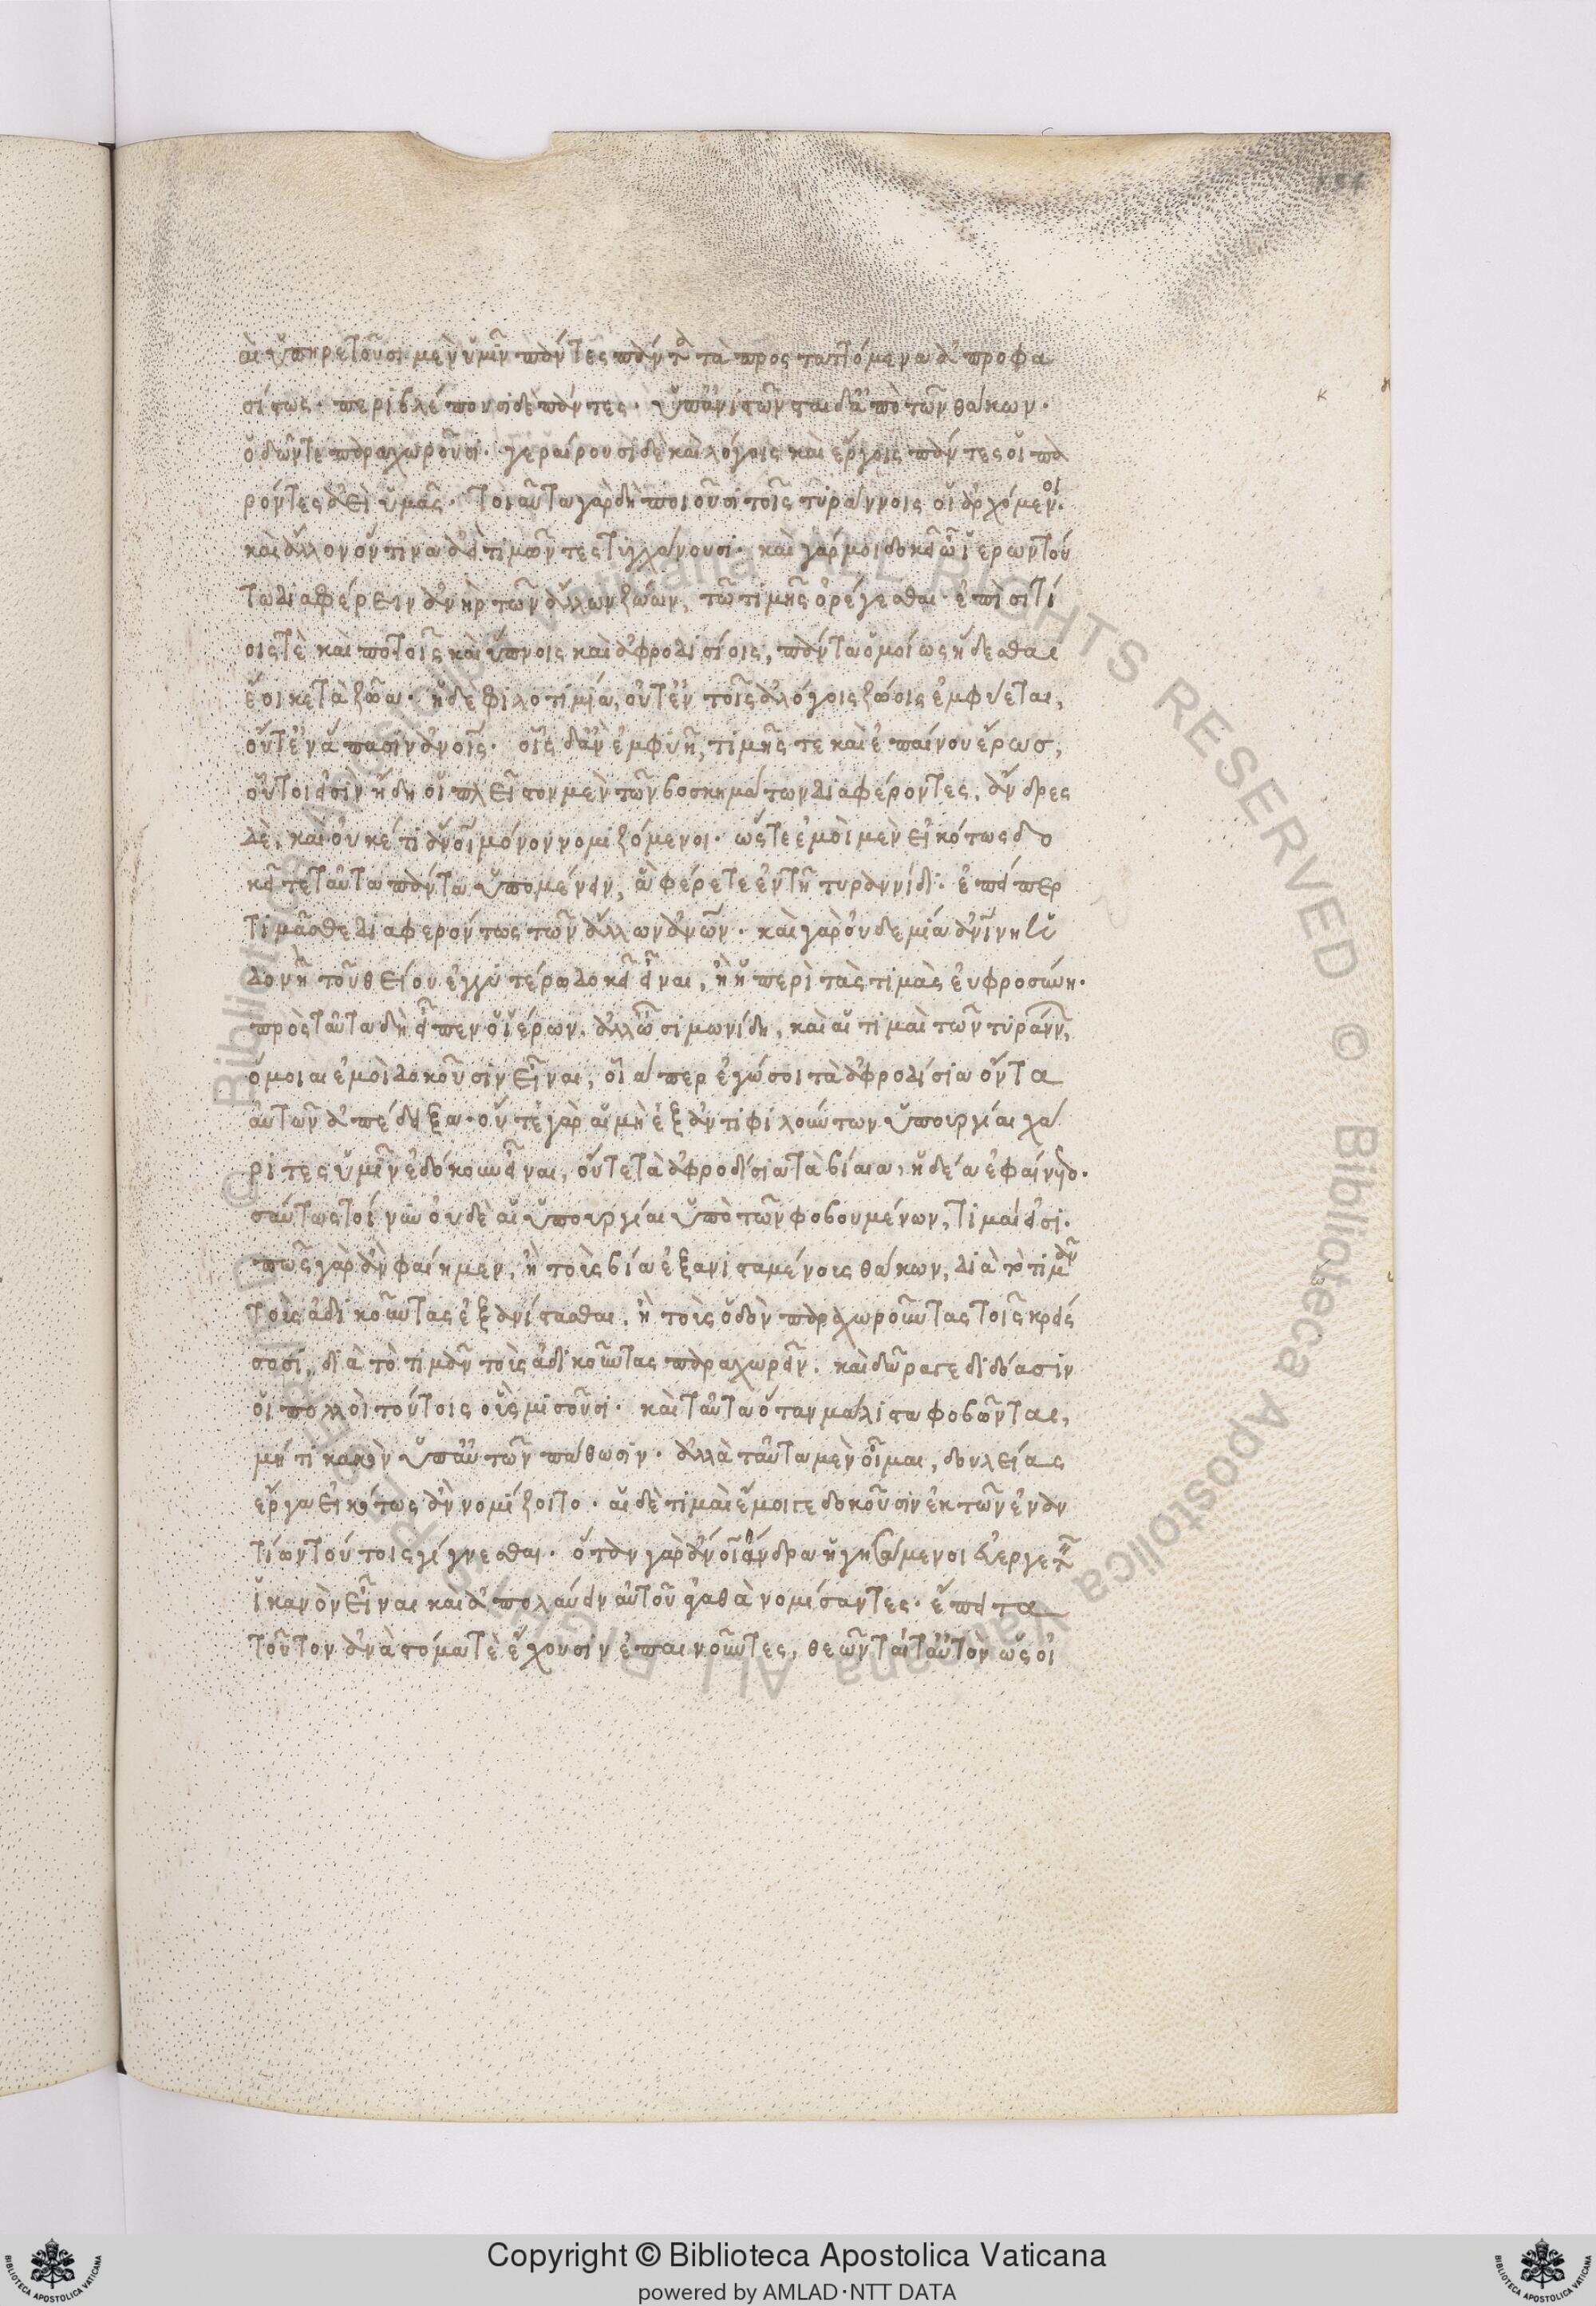 ἃ ὑπηρετοῦσι μὲν ὑμῖν πάντες πάντα τὰ προσταττόμενα ἀπροφα
σίστως· περιβλέπουσι δὲ πάντες· ὑπανίστανται δ' ἀπὸ τῶν θάκων·
ὁδῶν τε παραχωροῦσι· γεραίρουσι δὲ καὶ λόγοις καὶ ἔργοις πάντες οἱ πα
ρόντες ἀεὶ ὑμᾶς· τοιαῦτα γὰρ δὴ ποιοῦσι τοῖς τυράννοις οἱ ἀρχόμενοι·
καὶ ἄλλον ὅντινα ἀεὶ τιμῶντες τυγχάνουσι· καὶ γάρ μοι δοκεῖ ὦ ἱέρων τού
τω διαφέρειν ἀνὴρ τῶν ἄλλων ζώων, τῶ τιμῆς ὀρέγεσθαι· ἐπὶ σιτί
οις τὲ καὶ ποτοῖς καὶ ὕπνοις καὶ ἀφροδισίοις, πάντα ὁμοίως ἥδεσθαι
ἔοικε τὰ ζῶα· ἡ δὲ φιλοτιμία, οὔτ' ἐν τοῖς ἀλόγοις ζώοις ἐμφύεται,
οὔτ' ἐν ἅπασιν ἀνοις· οἷς δ' ἂν ἐμφυῆ, τιμῆς τε καὶ ἐπαίνου ἔρως,
οὗτοι εἰσὶν ἤδη οἱ πλεῖστον μὲν τῶν βοσκημάτων διαφέροντες, ἄνδρες
δὲ, καὶ οὐκέτι ἄνοι μόνον νομιζόμενοι· ὥστε ἐμοὶ μὲν εἰκότως δο
κεῖτε ταῦτα πάντα ὑπομένειν, ἃ φέρετε ἐν τῆ τυραννίδι· ἐπείπερ
τιμᾶσθε διαφερόντως τῶν ἄλλων ἀνων· καὶ γὰρ οὐδεμία ἀνίνη
δονὴ τοῦ θείου ἐγγυτέρω δοκεῖ εἶναι, ἢ ἡ περὶ τὰς τιμὰς εὐφροσύνη·
πρὸς ταῦτα δὴ εἶπεν ὁ ἱέρων. ἀλλ' ὦ σιμωνίδη, καὶ αἱ τιμαὶ τῶν τυράνν,
ὅμοιαι ἐμοὶ δοκοῦσιν εἶναι, οἷάπερ ἐγώ σοι τὰ ἀφροδίσια ὄντα
αὐτῶν ἀπέδειξα· οὔτε γὰρ αἱ μὴ ἐξ ἀντιφιλούντων ὑπουργίαι χά
ριτες ὑμῖν ἐδόκουν εἶναι, οὔτε τὰ ἀφροδίσια τὰ βίαια, ἡδέα ἐφαίνετο·
σαύτως τοίνυν οὐδὲ αἱ ὑπουργίαι ὑπὸ τῶν φοβουμένων, τιμαί εἰσι·
πῶς γὰρ ἂν φαίημεν, ἢ τοὺς βία ἐξανισταμένοις θάκων, διὰ τὸ τιμᾶν
τοὺς ἀδικοῦντας ἐξανίστασθαι, ἢ τοὺς ὁδὸν παραχωροῦντας τοῖς κρείσ
σοσι, διὰ τὸ τιμᾶν τοὺς ἀδικοῦντας παραχωρεῖν. καὶ δῶρά γε διδόασιν
οἱ πολλοὶ τούτοις οὓς μισοῦσι· καὶ ταῦτα ὅταν μάλιστα φοβῶνται,
μή τι κακὸν ὑπ' αὐτῶν πάθωσιν· ἀλλὰ ταῦτα μὲν οἶμαι, δουλείας
ἔργα εἰκότως ἂν νομίζοιτο· αἱ δὲ τιμαὶ ἔμοιγε δοκοῦσιν ἐκ τῶν ἐναν
τίων τούτοις γίγνεσθαι· ὅταν γὰρ ἄνοι ἄνδρα ἡγησάμενοι εὐεργετεῖν
ἱκανὸν εἶναι καὶ ἀπολαύειν αὐτοῦ ἀγαθὰ νομίσαντες· ἔπειτα
τοῦτον ἀνὰ στόμα τὲ ἔχουσιν ἐπαινοῦντες, θεῶνταί τ' αὐτὸν ὡς οἰ
Copyright © Biblioteca Apostolica Vaticana
powered by AMLAD·NTT DATA